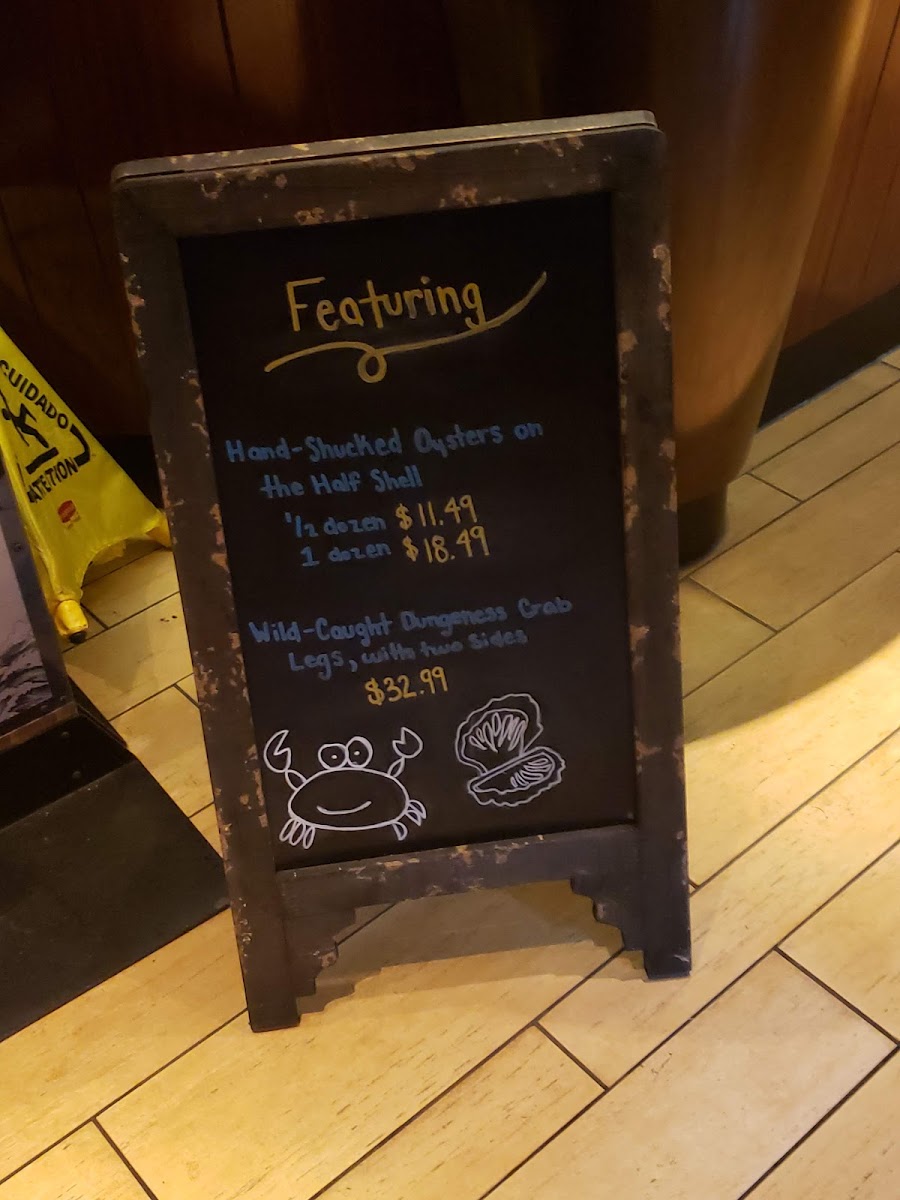 Featuring
Hand-Shucked Oysters on
the Half Shell
1/2 dozen $11.49
1 dozen $18.49
Wild-Caught Dungeness Crab
Legs, with two sides
$32.99
CUIDADO
ATTENTION